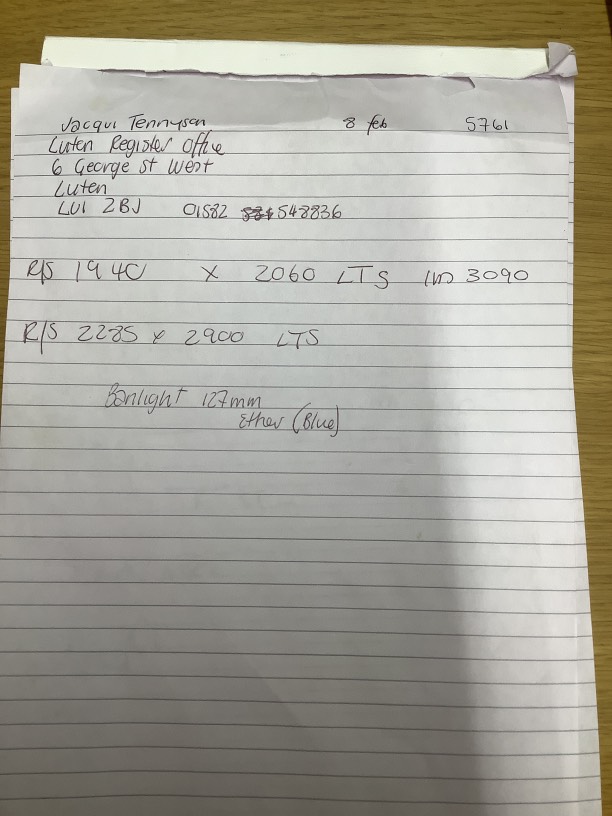 Jacqui Tennyson 8 Feb 5761
Luten Register Office
6 George St West
Luten
LU1 2BJ 01582 548836
R/S 1940 x 2060 LTS IW 3090
R/S 2285 x 2900 LTS
Banlight 127mm
Ether (Blue)